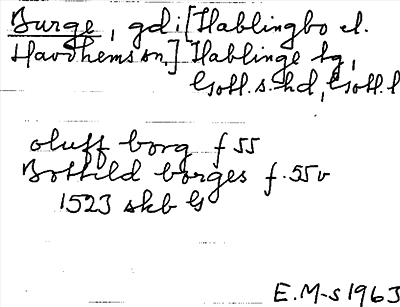 Burge, gd i [Hablingbo el.
Havdhems sn.] Hablinge tg,
Gotl. s. hd, Gotl. l
oluff borg f 55
Bottild borges f. 55v
1523 skb G
E.M-s 1963